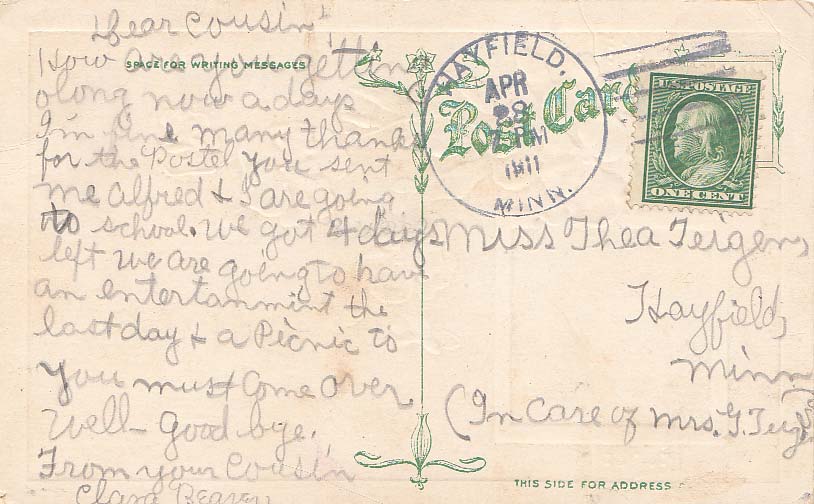 Dear Cousin!
How are you getting
SPACE FOR WRITING MESSAGES
along now a days
I'm fine many thanks
for the Postel you sent
me Alfred & I are going
to school. We got 4 days
left we are going to have
an entertanmint the
last day & a Picnic to
You must come over
Well- good bye.
From your Cousin
Clara
HAYFIELD,
APR
28
PM
1911
MINN.
Post Card
U.S. POSTAGE
ONE CENT
Miss Thea Teigen,
Hayfield,
Minn
(In care of Mrs. G. Teig
THIS SIDE FOR ADDRESS